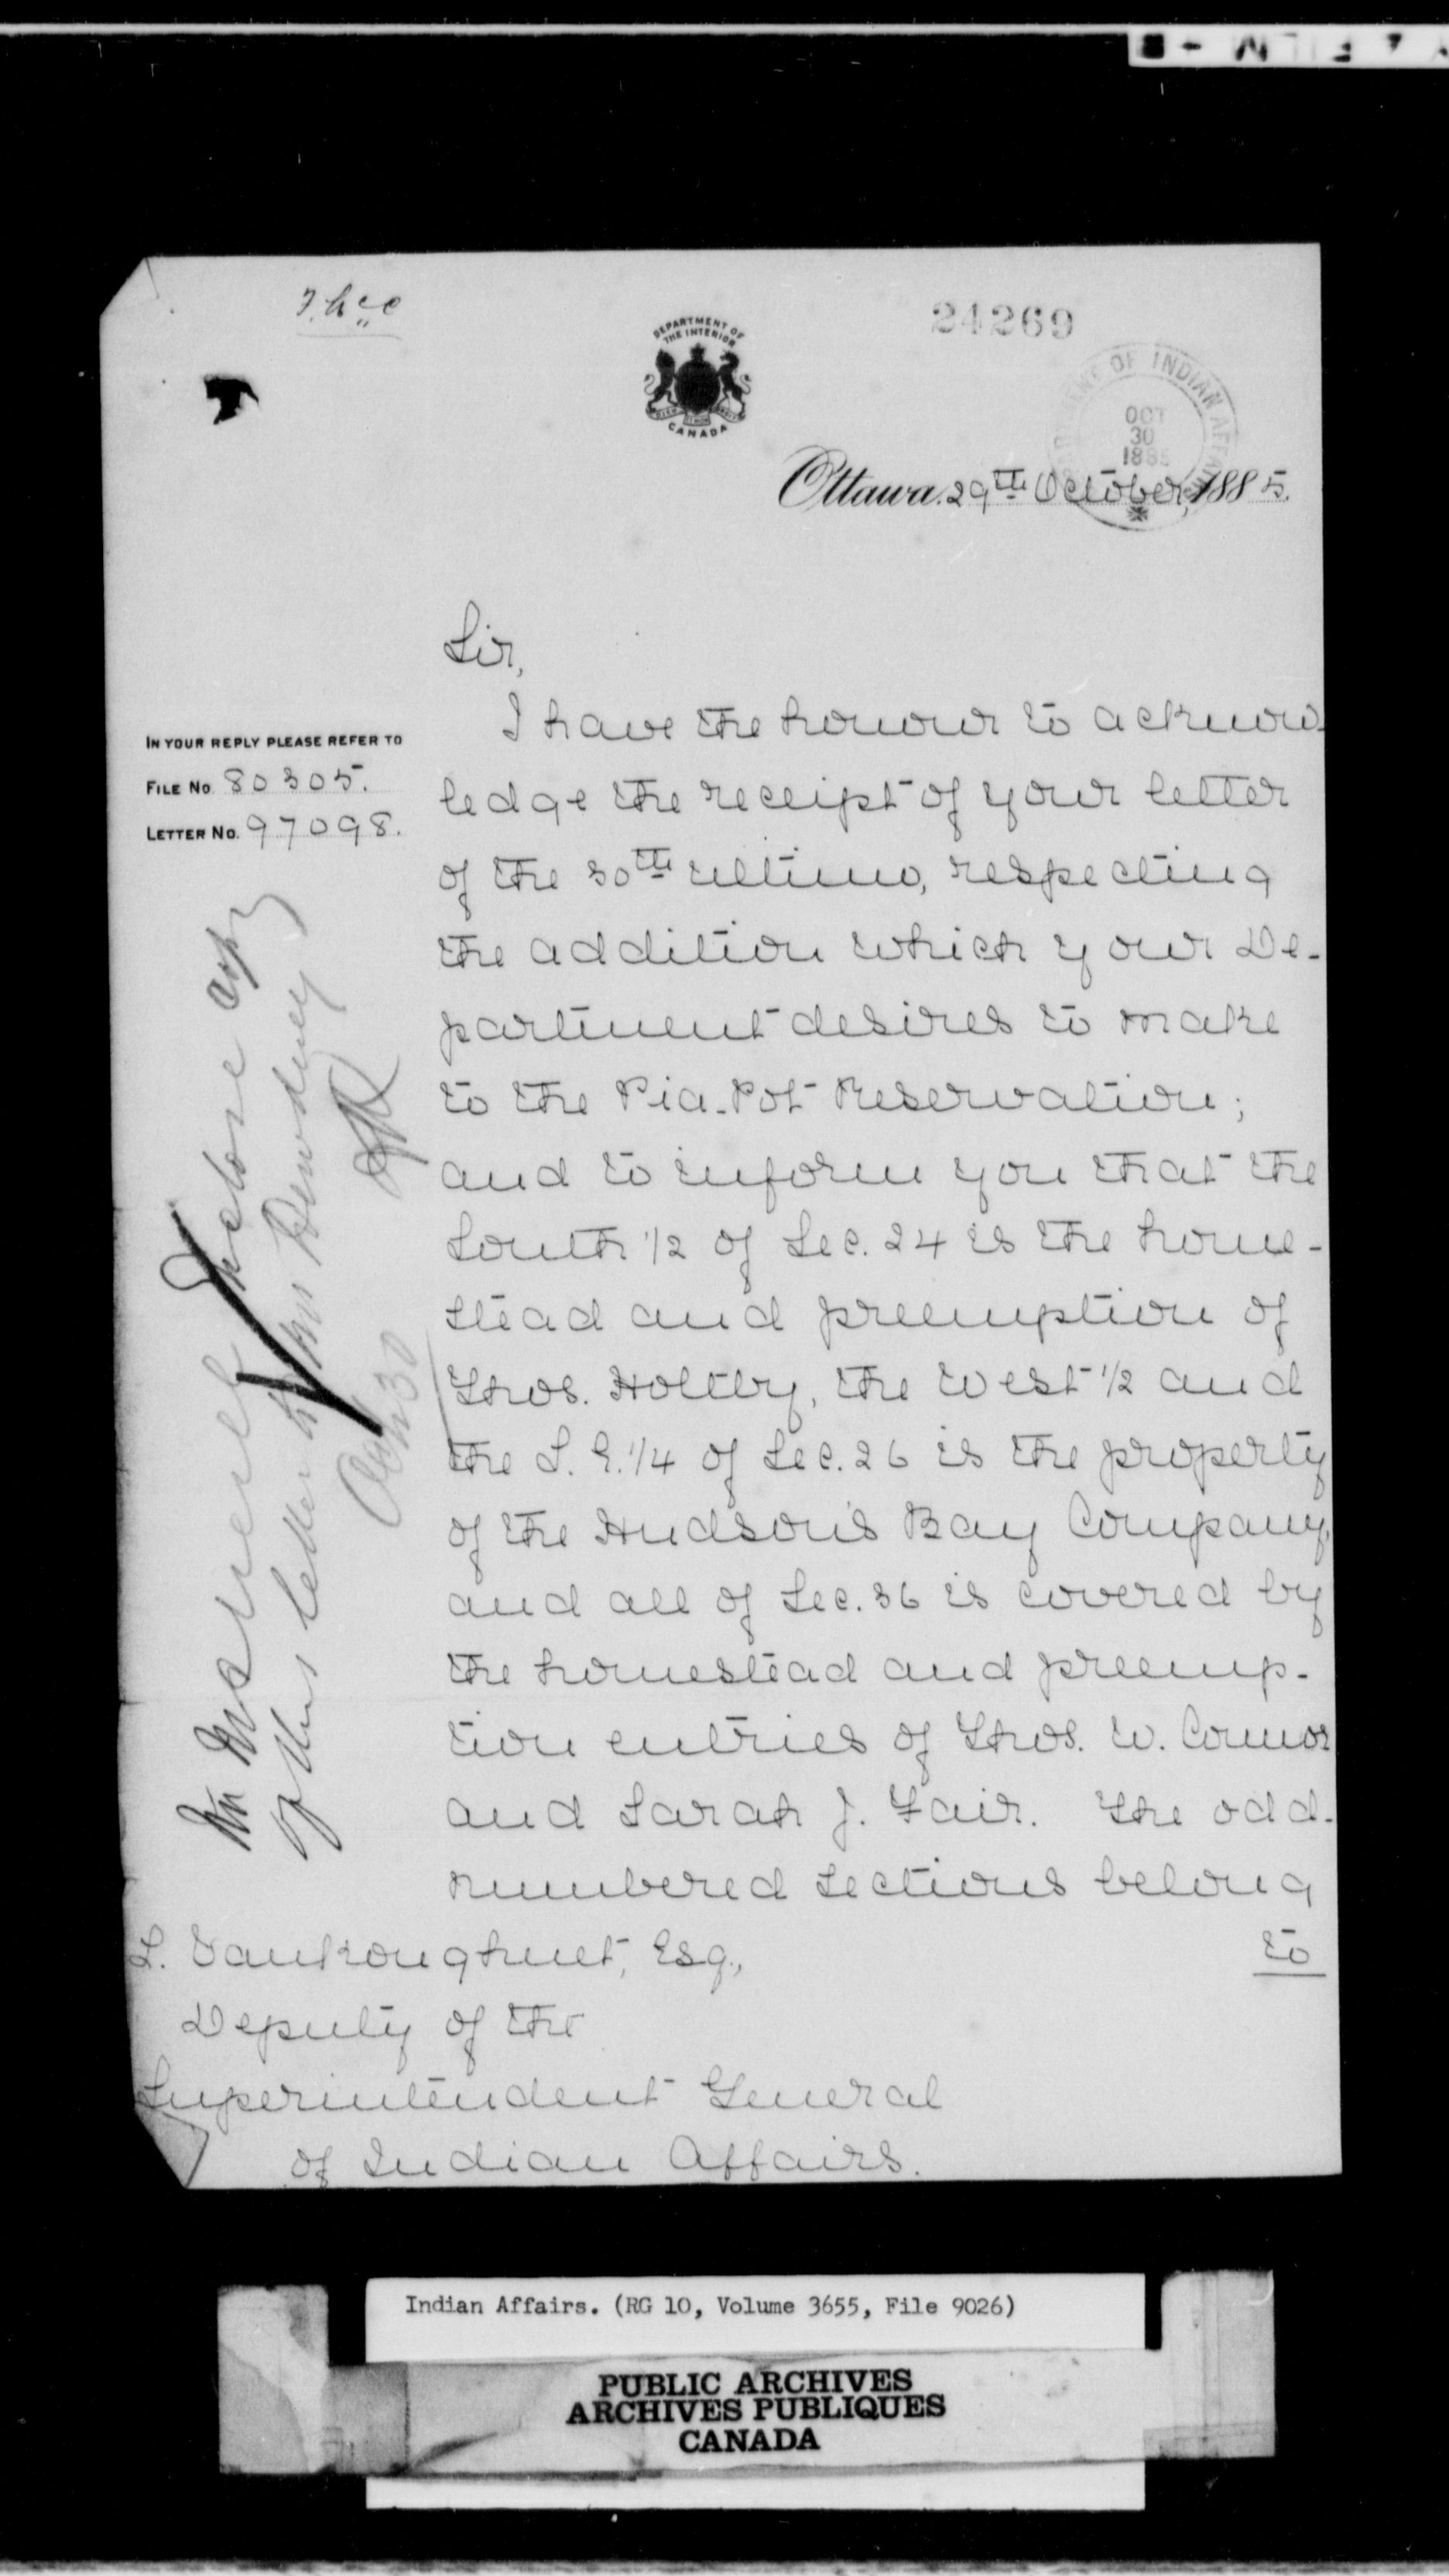 24269
DEPARTMENT OF
THE INTERIOR
CANADA
DEPARTMENT OF INDIAN AFFAIRS
OCT
30
1885
Ottawa. 29th October, 1885.
Sir,
I have the honour to acknow-
IN YOUR REPLY PLEASE REFER TO
FILE No 80305.
LETTER No. 97098.
ledge the receipt of your letter
of the 30th ultimo, respecting
the addition which your De-
partment desires to make
to the Pia-Pot Reservation;
and to inform you that the
South 1/2 of Sec. 24 is the home-
stead and preemption of
Thos. Holtby, the West 1/2 and
the S. E. 1/4 of Sec. 26 is the property
of the Hudson's Bay Company,
and all of Sec. 36 is covered by
the homestead and preemp-
tion entries of Thos. W. Connor
and Sarah J. Fair. The odd-
numbered sections belong
to
L. Vankoughnet, Esq.,
Deputy of the
Superintendent General
of Indian Affairs.
Mr McNeill Enclose copy
of this letter to Mr Dewdney
Oct 30
Indian Affairs. (RG 10, Volume 3655, File 9026)
PUBLIC ARCHIVES
ARCHIVES PUBLIQUES
CANADA